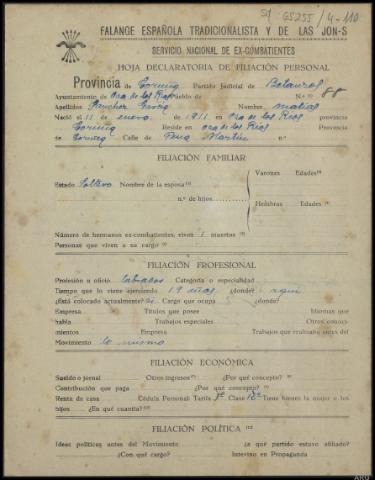 SJ-65255/4-110
FALANGE ESPAÑOLA TRADICIONALISTA Y DE LAS JON-S
SERVICIO NACIONAL DE EX-COMBATIENTES
HOJA DECLARATORIA DE FILIACIÓN PERSONAL
Provincia de Coruña Partido Judicial de Betanzos
Ayuntamiento de Oza de los Ríos Pueblo de N.º 88
Apellidos Sánchez Nombre Matías
Nació el 11 de enero de 1911 en Oza de los Ríos provincia
Coruña Reside en Oza de los Ríos Provincia
de Coruña Calle de Martín n.º
FILIACIÓN FAMILIAR
Estado Soltero Nombre de la esposa
Varones Edades
n.º de hijos
Hembras Edades
Número de hermanos ex-combatientes, vivos 1 muertos
Personas que viven a su cargo
FILIACIÓN PROFESIONAL
Profesión u oficio labrador Categoría o especialidad
Tiempo que lo viene ejerciendo 19 años ¿dónde? aquí
¿Está colocado actualmente? Si Cargo que ocupa ¿dónde?
Empresa Títulos que posee Idiomas que
habla Trabajos especiales Otros conoci-
mientos Empresa Trabajos que realizaba antes del
Movimiento lo mismo
FILIACIÓN ECONÓMICA
Sueldo o jornal Otros ingresos ¿Por qué concepto?
Contribución que paga ¿Por qué concepto?
Renta de casa Cédula Personal Tarifa Clase Tiene bienes la mujer o los
hijos ¿En qué cuantía?
FILIACIÓN POLÍTICA
Ideas políticas antes del Movimiento ¿a qué partido estuvo afiliado?
¿Con qué cargo? Intervino en Propaganda